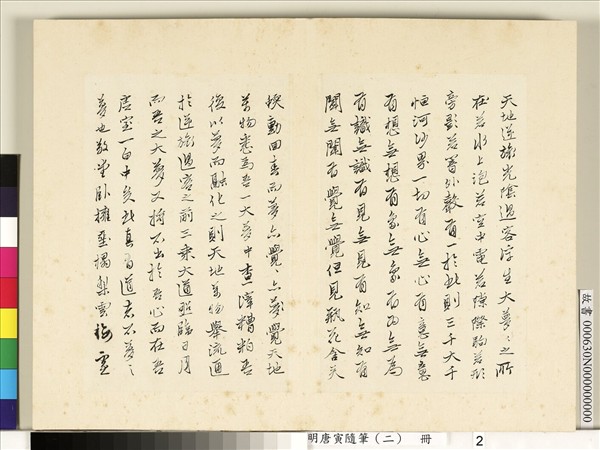 天地逆旅光陰過客浮生大夢〻之所
在若水上泡若空中電若隙際駒若形
旁影若響外聲有一於此則三千大千
恒河沙界一切有心無心有意無意
有想無想有象無象有為無為
有識無識有見無見有知無知有
聞無聞有覺無覺但見瓶花含笑
動四表而夢亦覺〻亦夢覺天地
萬物悉為吾一大夢中查滓糟粕吾
復以夢而融化之則天地萬物舉流通
於逆旅過客之前三乘大道照臨日月
而吾之大夢又將不出於吾心而在吾
虛室一白中矣此真有道者不夢〻
夢也敬堂臥擁壘榻梨雲梅雪
故書000630N000000000
明唐寅隨筆(二) 冊 2